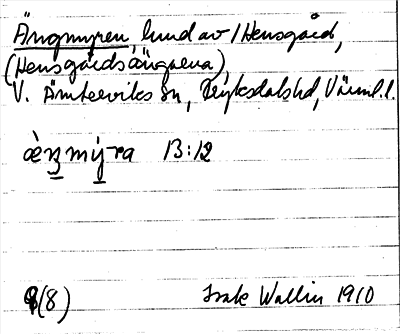 Ängmyren, hund av / Hensgård,
(Hensgårdsängarna)
V. Ämterviks sn, Fryksdals hd, Värml. l.
æ̀ŋmýra 13:12
9(8) Isak Wallin 1910